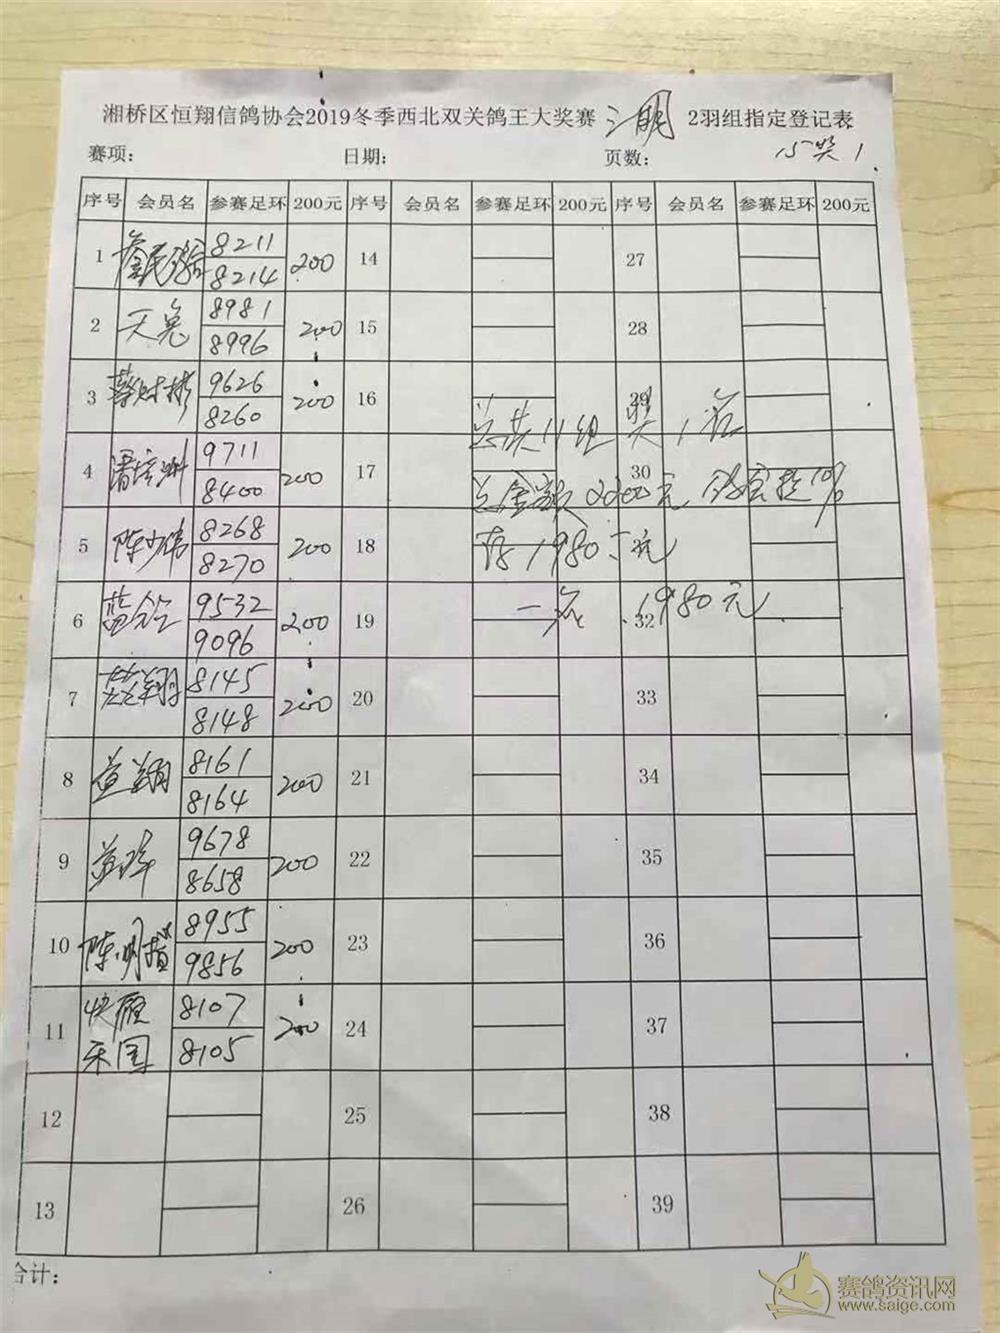 湘桥区恒翔信鸽协会2019冬季西北双关鸽王大奖赛 三明 2羽组指定登记表
赛项: 日期: 页数: 15奖1
序号 会员名 参赛足环 200元 序号 会员名 参赛足环 200元 序号 会员名 参赛足环 200元
1 8211 200 14 27
8214
2 天兔 8981 200 15 28
8996
3 蔡财彬 9626 200 16 29
8260
总共11组 奖1名
4 潘培洲 9711 200 17 30
8400
总金额2200元 10%
5 陈少伟 8268 200 18
8270
存1980元
6 9532 200 19 32
9096
一名 1980元
7 8145 200 20 33
8148
8 益翔 8161 200 21 34
8164
9 9678 200 22 35
8658
10 陈明 8955 200 23 36
9856
11 8107 200 24 37
8105
12 25 38
13 26 39
合计:
赛鸽资讯网
www.saige.com